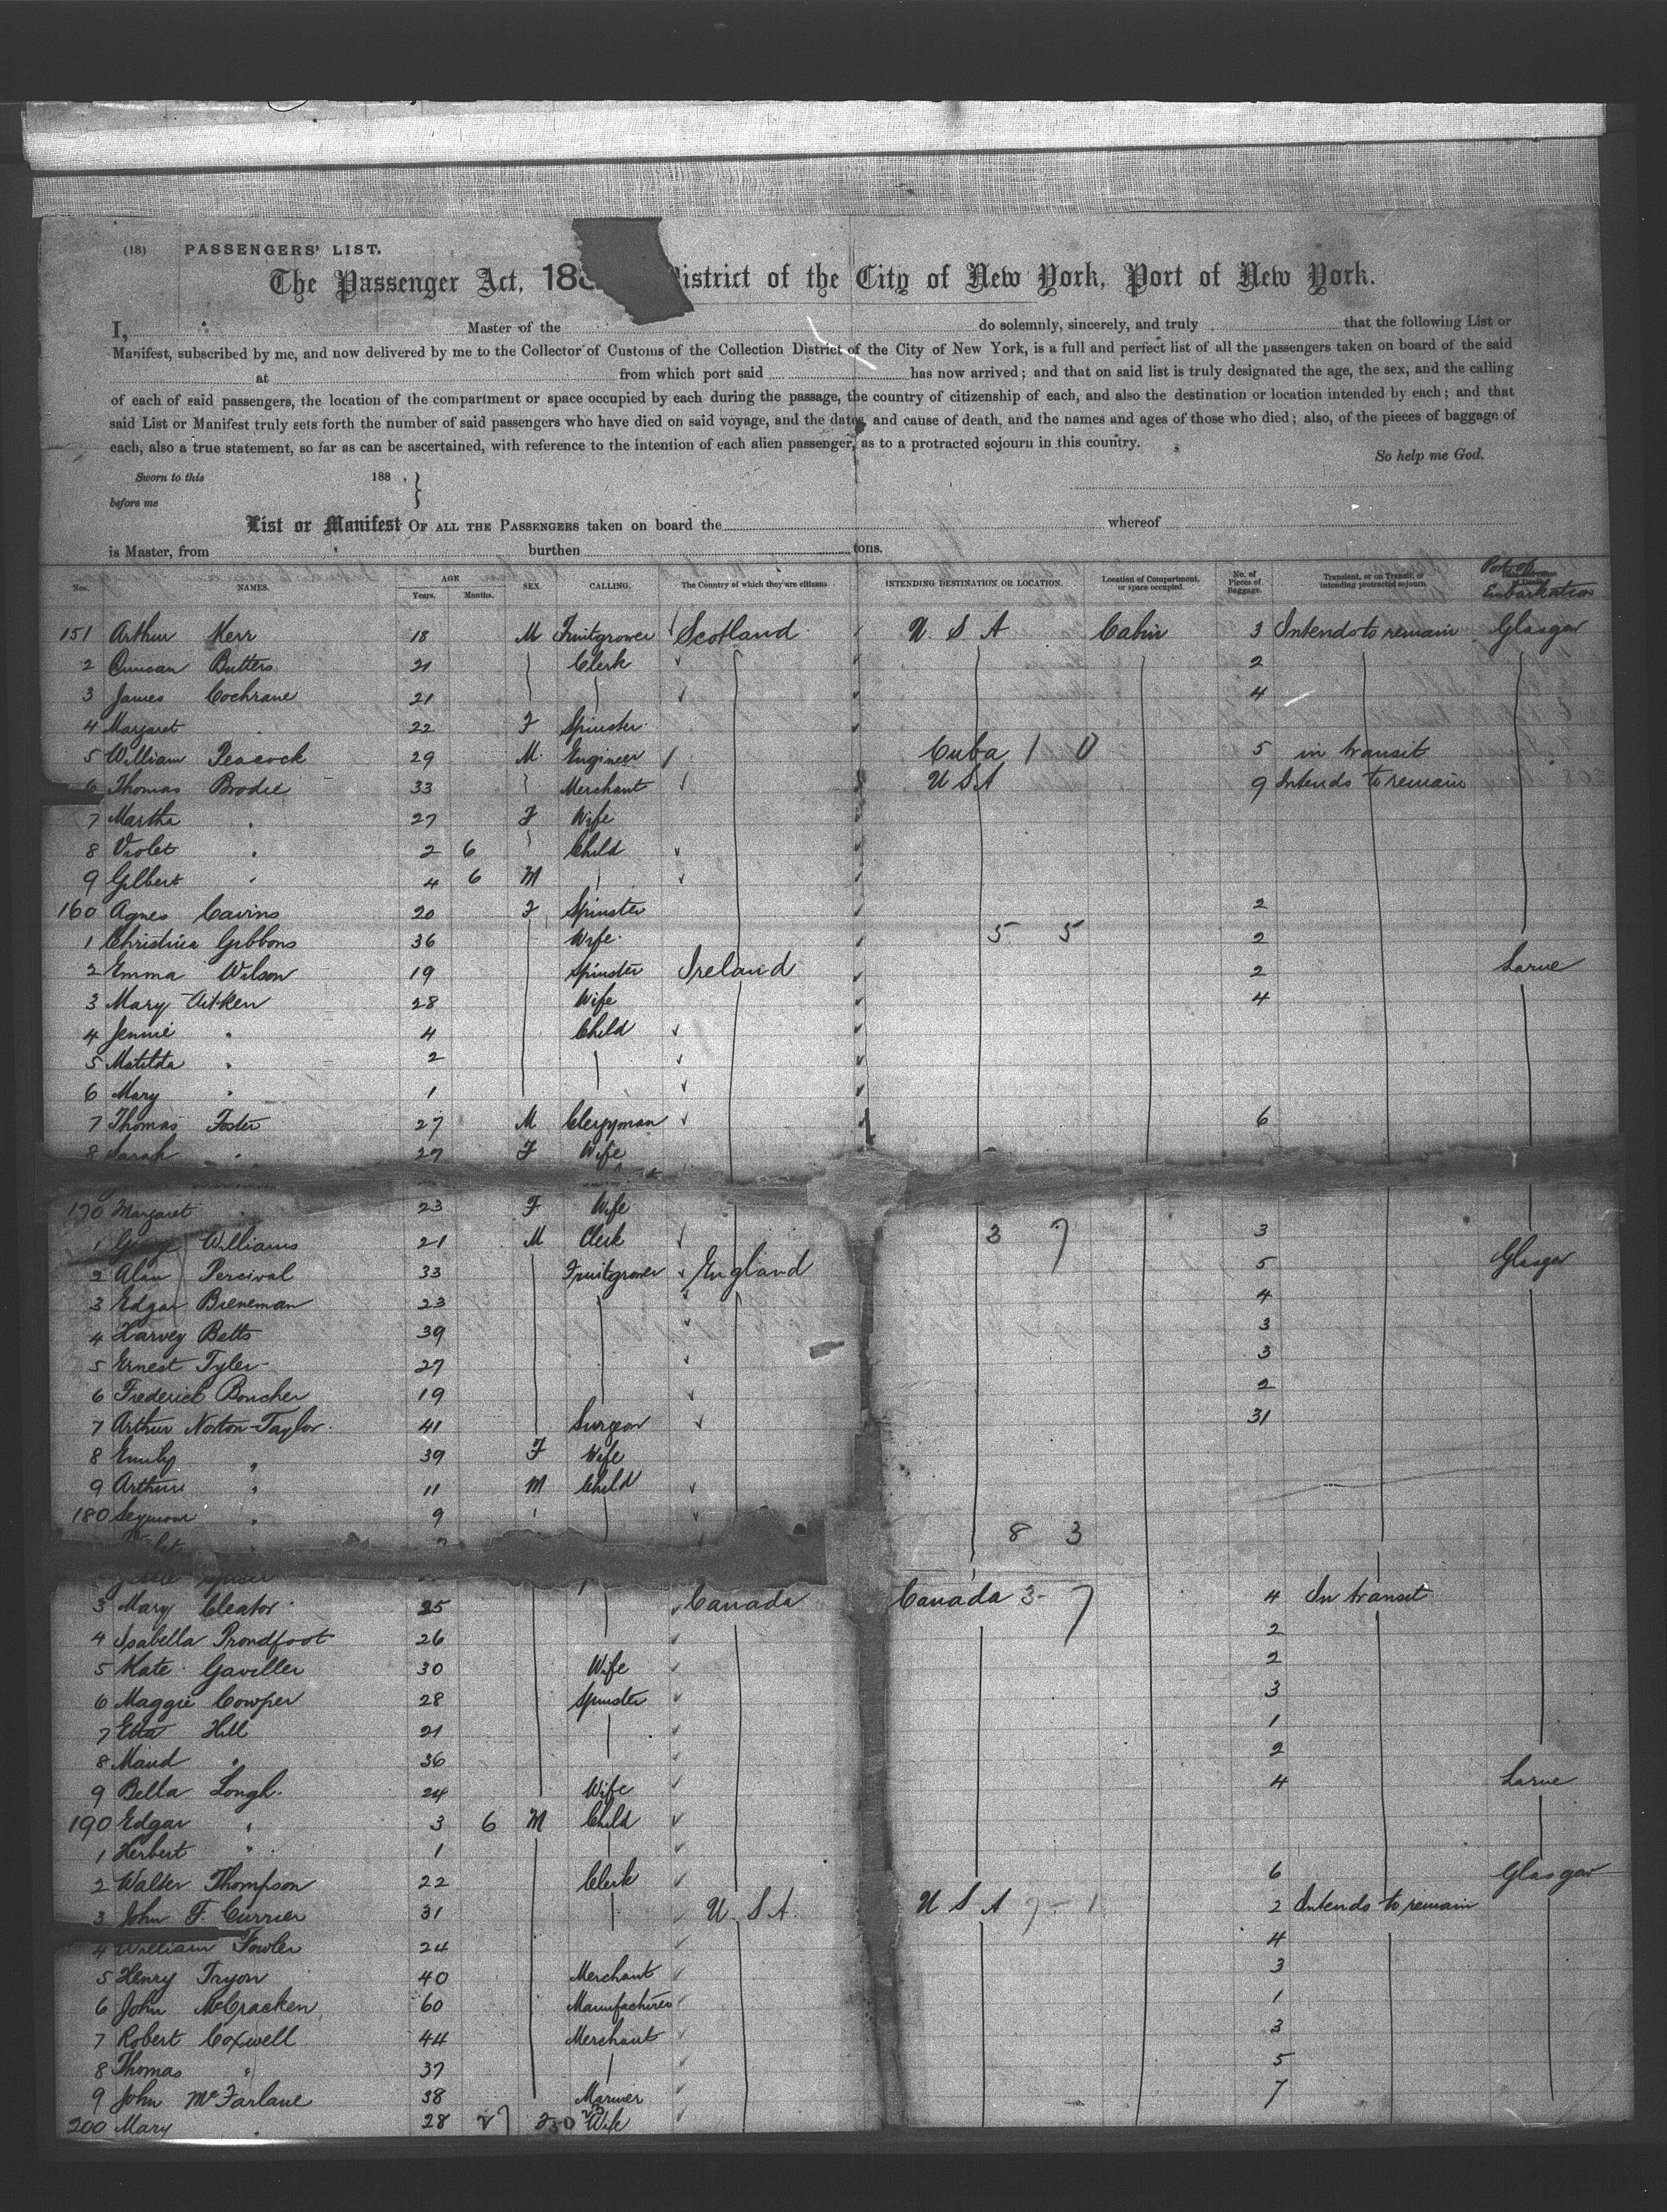 (18) PASSENGERS' LIST.
The Passenger Act, 188 District of the City of New York, Port of New York.
I, Master of the do solemnly, sincerely, and truly that the following List or
Manifest, subscribed by me, and now delivered by me to the Collector of Customs of the Collection District of the City of New York, is a full and perfect list of all the passengers taken on board of the said
at from which port said has now arrived; and that on said list is truly designated the age, the sex, and the calling
of each of said passengers, the location of the compartment or space occupied by each during the passage, the country of citizenship of each, and also the destination or location intended by each; and that
said List or Manifest truly sets forth the number of said passengers who have died on said voyage, and the dates and cause of death, and the names and ages of those who died; also, of the pieces of baggage of
each, also a true statement, so far as can be ascertained, with reference to the intention of each alien passenger, as to a protracted sojourn in this country.
So help me God.
Sworn to this 188 ,
before me
List or Manifest OF ALL THE PASSENGERS taken on board the whereof
is Master, from burthen tons.
Nos. NAMES. AGE Years. Months. SEX. CALLING. The Country of which they are citizens INTENDING DESTINATION OR LOCATION. Location of Compartment, or space occupied. No. of Pieces of Baggage. Transient, or on Transit, or intending protracted sojourn Port of Embarkation
151 Arthur Kerr 18 M Fruitgrower Scotland U S A Cabin 3 Intends to remain Glasgow
2 Duncan Butters 21 Clerk 2
3 James Cochrane 21 4
4 Margaret " 22 F Spinster
5 William Peacock 29 M Engineer Cuba 1 0 5 in transit
6 Thomas Brodie 33 Merchant U S A 9 Intends to remain
7 Martha " 27 F Wife
8 Violet " 2 6 Child
9 Gilbert " 4 6 M
160 Agnes Cavins 20 F Spinster 2
1 Christina Gibbons 36 Wife 5 5 2
2 Emma Wilson 19 Spinster Ireland 2 Larne
3 Mary Aitken 28 Wife 4
4 Jennie " 4 Child
5 Matilda " 2
6 Mary " 1
7 Thomas Foster 27 M Clergyman 6
8 Sarah " 27 F Wife
170 Margaret 23 F Wife
1 George Williams 21 M Clerk 3 7 3
2 Alan Percival 33 Fruitgrower England 5 Glasgow
3 Edgar Bieneman 23 4
4 Harvey Betts 39 3
5 Ernest Tyler 27 3
6 Frederick Boucher 19 2
7 Arthur Norton-Taylor 41 Surgeon 31
8 Emily " 39 F Wife
9 Arthur " 11 M Child
180 Seymour " 9 8 3
3 Mary Cleator 25 Canada Canada 3 - 7 4 In transit
4 Isabella Proudfoot 26 2
5 Kate Gaviller 30 Wife 2
6 Maggie Cowper 28 Spinster 3
7 Etta Hill 21 1
8 Maud " 36 2
9 Bella Lough 24 Wife 4 Larne
190 Edgar " 3 6 M Child
1 Herbert " 1
2 Walter Thompson 22 Clerk 6 Glasgow
3 John F. Currier 31 U.S.A. U S A 7 - 1 2 Intends to remain
4 William Fowler 24 4
5 Henry Tryon 40 Merchant 3
6 John McCracken 60 Manufacturer 1
7 Robert Coxwell 44 Merchant 3
8 Thomas " 37 5
9 John McFarlane 38 Mariner 7
200 Mary 28 Wife